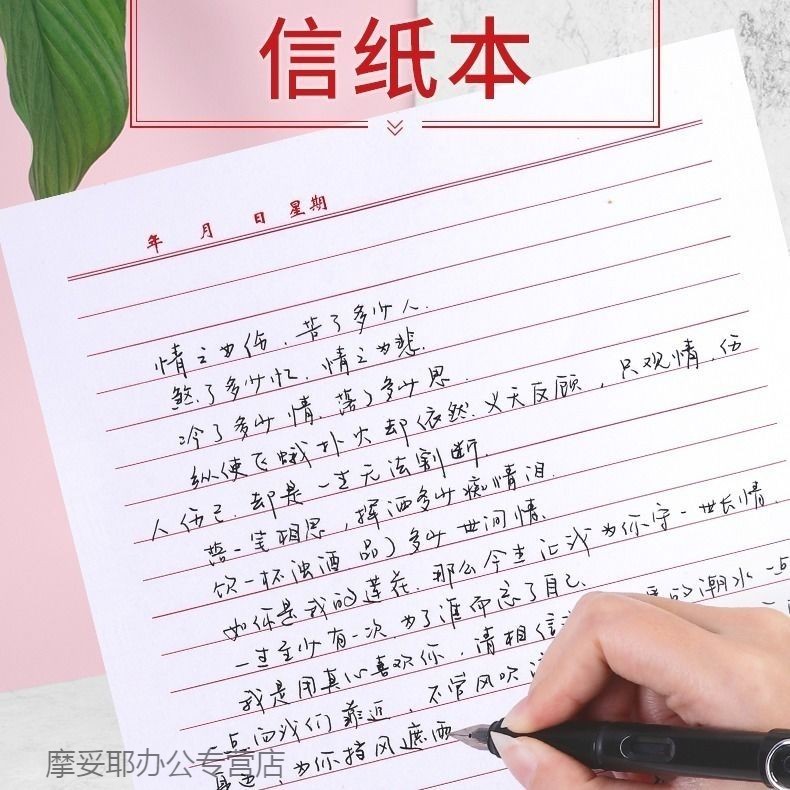 信纸本
年 月 日 星期
情之为伤，苦了多少人.
煞了多少忆，情之为悲.
冷了多少情，多少思.
纵使飞蛾扑火却依然义无反顾，只观情，伤
人伤己，却是一生无法割断.
一笔相思，挥洒多少痴情泪.
饮一杯浊酒品了多少世间情.
如你是我的莲花，那么今生让我为你守一世长情.
一生至少有一次，为了谁而忘了自己.
我是用真心喜欢你，请相信 的潮水一点
一点向我们靠近，不管风吹
为你挡风遮雨
摩妥耶办公专营店